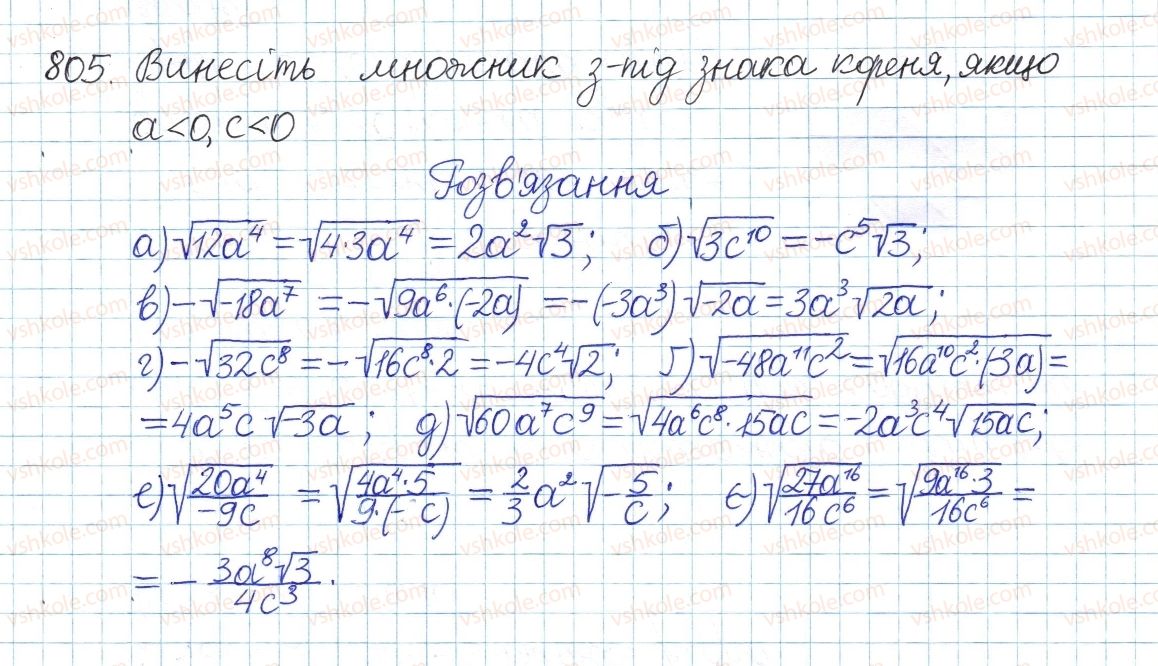 805. Винесіть множник з-під знака кореня, якщо
a<0, c<0
Розв'язання
а) √12a⁴ = √4·3a⁴ = 2a²√3; б) √3c¹⁰ = -c⁵√3;
в) -√-18a⁷ = -√9a⁶·(-2a) = -(-3a³)√-2a = 3a³√2a;
г) -√32c⁸ = -√16c⁸·2 = -4c⁴√2; ґ) √-48a¹¹c² = √16a¹⁰c²·(-3a) =
= 4a⁵c√-3a; д) √60a⁷c⁹ = √4a⁶c⁸·15ac = -2a³c⁴√15ac;
е) √20a⁴/-9c = √4a⁴·5/9·(-c) = 2/3a²√-5/c; є) √27a¹⁶/16c⁶ = √9a¹⁶·3/16c⁶ =
= -3a⁸√3/4c³.